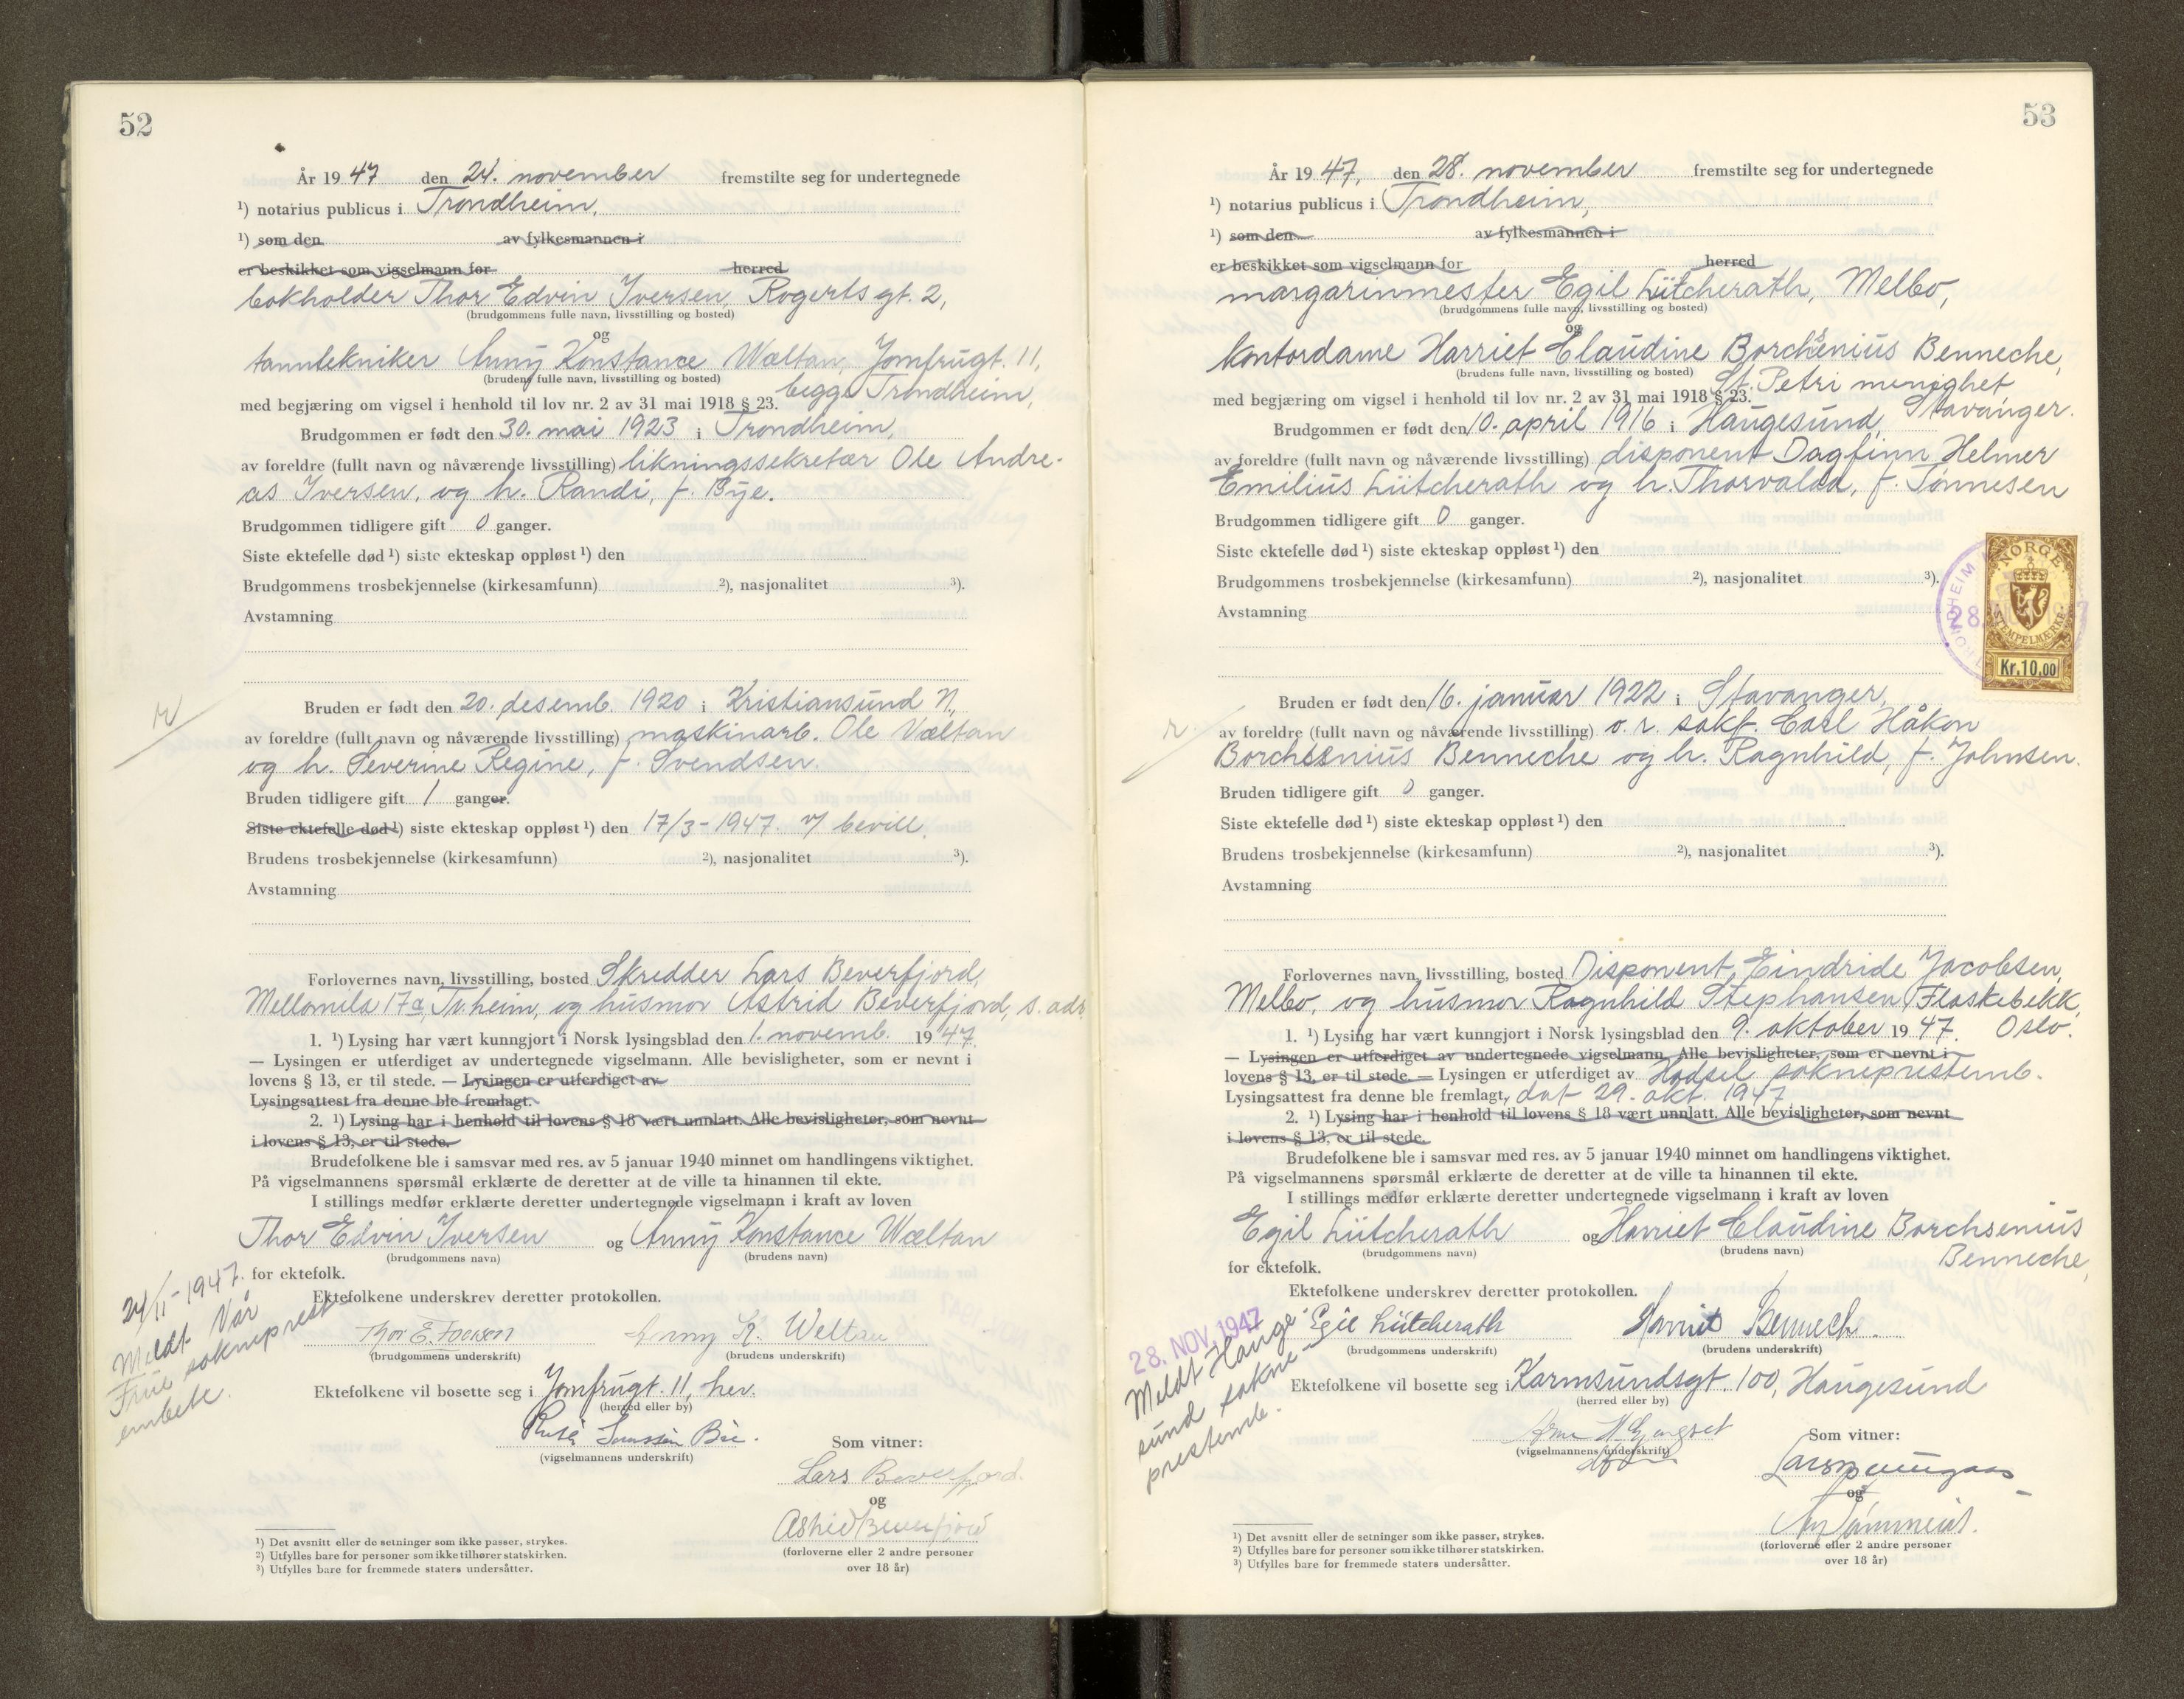 52
År 1947 den 24. november fremstilte seg for undertegnede
¹) notarius publicus i Trondheim,
¹) som den av fylkesmannen i
er beskikket som vigselmann for herred
bokholder Thor Edvin Iversen, Rogertsgt. 2,
(brudgommens fulle navn, livsstilling og bosted)
og
tanntekniker Anny Konstance Wæltan, Jomfrugt. 11,
(brudens fulle navn, livsstilling og bosted)
begge Trondheim,
med begjæring om vigsel i henhold til lov nr. 2 av 31 mai 1918 § 23.
Brudgommen er født den 30. mai 1923 i Trondheim,
av foreldre (fullt navn og nåværende livsstilling) likningssekretær Ole Andre-
as Iversen, og h. Randi, f. Bye.
Brudgommen tidligere gift 0 ganger.
Siste ektefelle død ¹) siste ekteskap oppløst ¹) den
Brudgommens trosbekjennelse (kirkesamfunn) ²), nasjonalitet ³).
Avstamning
Bruden er født den 20. desemb. 1920 i Kristiansund N.,
av foreldre (fullt navn og nåværende livsstilling) maskinarb. Ole Væltan
og h. Severine Regine, f. Svendsen.
Bruden tidligere gift 1 ganger.
Siste ektefelle død ¹) siste ekteskap oppløst ¹) den 17/3-1947 v/ bevill.
Brudens trosbekjennelse (kirkesamfunn) ²), nasjonalitet ³).
Avstamning
Forlovernes navn, livsstilling, bosted Skredder Lars Beverfjord,
Mellomila 17a, Tr.heim, og husmor Astrid Beverfjord, s. adr.
1. ¹) Lysing har vært kunngjort i Norsk lysingsblad den 1. novemb. 1947.
— Lysingen er utferdiget av undertegnede vigselmann. Alle bevisligheter, som er nevnt i
lovens § 13, er til stede. — Lysingen er utferdiget av
Lysingsattest fra denne ble fremlagt.
2. ¹) Lysing har i henhold til lovens § 18 vært unnlatt. Alle bevisligheter, som nevnt
i lovens § 13, er til stede.
Brudefolkene ble i samsvar med res. av 5 januar 1940 minnet om handlingens viktighet.
På vigselmannens spørsmål erklærte de deretter at de ville ta hinannen til ekte.
I stillings medfør erklærte deretter undertegnede vigselmann i kraft av loven
Thor Edvin Iversen og Anny Konstance Wæltan
(brudgommens navn) (brudens navn)
for ektefolk.
Ektefolkene underskrev deretter protokollen.
24/11-1947.
Meldt Vår
Frue sokneprest
embete.
Thor E. Anny K. Weltan
(brudgommens underskrift) (brudens underskrift)
Ektefolkene vil bosette seg i Jomfrugt. 11, her.
(herred eller by)
(vigselmannens underskrift)
Som vitner:
Lars Beverfjord.
og
Astrid Beverfjord
(forloverne eller 2 andre personer
over 18 år)
¹) Det avsnitt eller de setninger som ikke passer, strykes.
²) Utfylles bare for personer som ikke tilhører statskirken.
³) Utfylles bare for fremmede staters undersåtter.
53
År 1947, den 28. november fremstilte seg for undertegnede
¹) notarius publicus i Trondheim,
¹) som den av fylkesmannen i
er beskikket som vigselmann for herred
margarinmester Egil Lütcherath, Melbo,
(brudgommens fulle navn, livsstilling og bosted)
og
kontordame Harriet Claudine Borchsenius Benneche,
(brudens fulle navn, livsstilling og bosted)
St. Petri menighet
Stavanger.
med begjæring om vigsel i henhold til lov nr. 2 av 31 mai 1918 § 23.
Brudgommen er født den 10. april 1916 i Haugesund,
av foreldre (fullt navn og nåværende livsstilling) disponent Dagfinn Helmer
Emilius Lütcherath og h. Thorvalda, f. Tønnesen
Brudgommen tidligere gift 0 ganger.
Siste ektefelle død ¹) siste ekteskap oppløst ¹) den
Brudgommens trosbekjennelse (kirkesamfunn) ²), nasjonalitet ³).
Avstamning
NORGE
STEMPELMERKE
Kr. 10,00
TRONDHEIM
28. NOV. 1947
Bruden er født den 16. januar 1922 i Stavanger,
av foreldre (fullt navn og nåværende livsstilling) o. r. sakf. Carl Håkon
Borchsenius Benneche og h. Ragnhild, f. Johnsen.
Bruden tidligere gift 0 ganger.
Siste ektefelle død ¹) siste ekteskap oppløst ¹) den
Brudens trosbekjennelse (kirkesamfunn) ²), nasjonalitet ³).
Avstamning
Forlovernes navn, livsstilling, bosted Disponent Eindride Jacobsen,
Melbo, og husmor Ragnhild Stephansen, Flaskebekk,
Oslo.
1. ¹) Lysing har vært kunngjort i Norsk lysingsblad den 9. oktober 1947.
— Lysingen er utferdiget av undertegnede vigselmann. Alle bevisligheter, som er nevnt i
lovens § 13, er til stede. — Lysingen er utferdiget av Hadsel sokneprestemb.
Lysingsattest fra denne ble fremlagt, dat 29. okt. 1947
2. ¹) Lysing har i henhold til lovens § 18 vært unnlatt. Alle bevisligheter, som nevnt
i lovens § 13, er til stede.
Brudefolkene ble i samsvar med res. av 5 januar 1940 minnet om handlingens viktighet.
På vigselmannens spørsmål erklærte de deretter at de ville ta hinannen til ekte.
I stillings medfør erklærte deretter undertegnede vigselmann i kraft av loven
Egil Lütcherath og Harriet Claudine Borchsenius
Benneche,
(brudgommens navn) (brudens navn)
for ektefolk.
Ektefolkene underskrev deretter protokollen.
28. NOV. 1947
Meldt Hauge-
sund sokne-
prestemb.
Egil Lütcherath Harriet Bennech.
(brudgommens underskrift) (brudens underskrift)
Ektefolkene vil bosette seg i Karmsundsgt. 100, Haugesund
(herred eller by)
(vigselmannens underskrift)
Som vitner:
og
(forloverne eller 2 andre personer
over 18 år)
¹) Det avsnitt eller de setninger som ikke passer, strykes.
²) Utfylles bare for personer som ikke tilhører statskirken.
³) Utfylles bare for fremmede staters undersåtter.